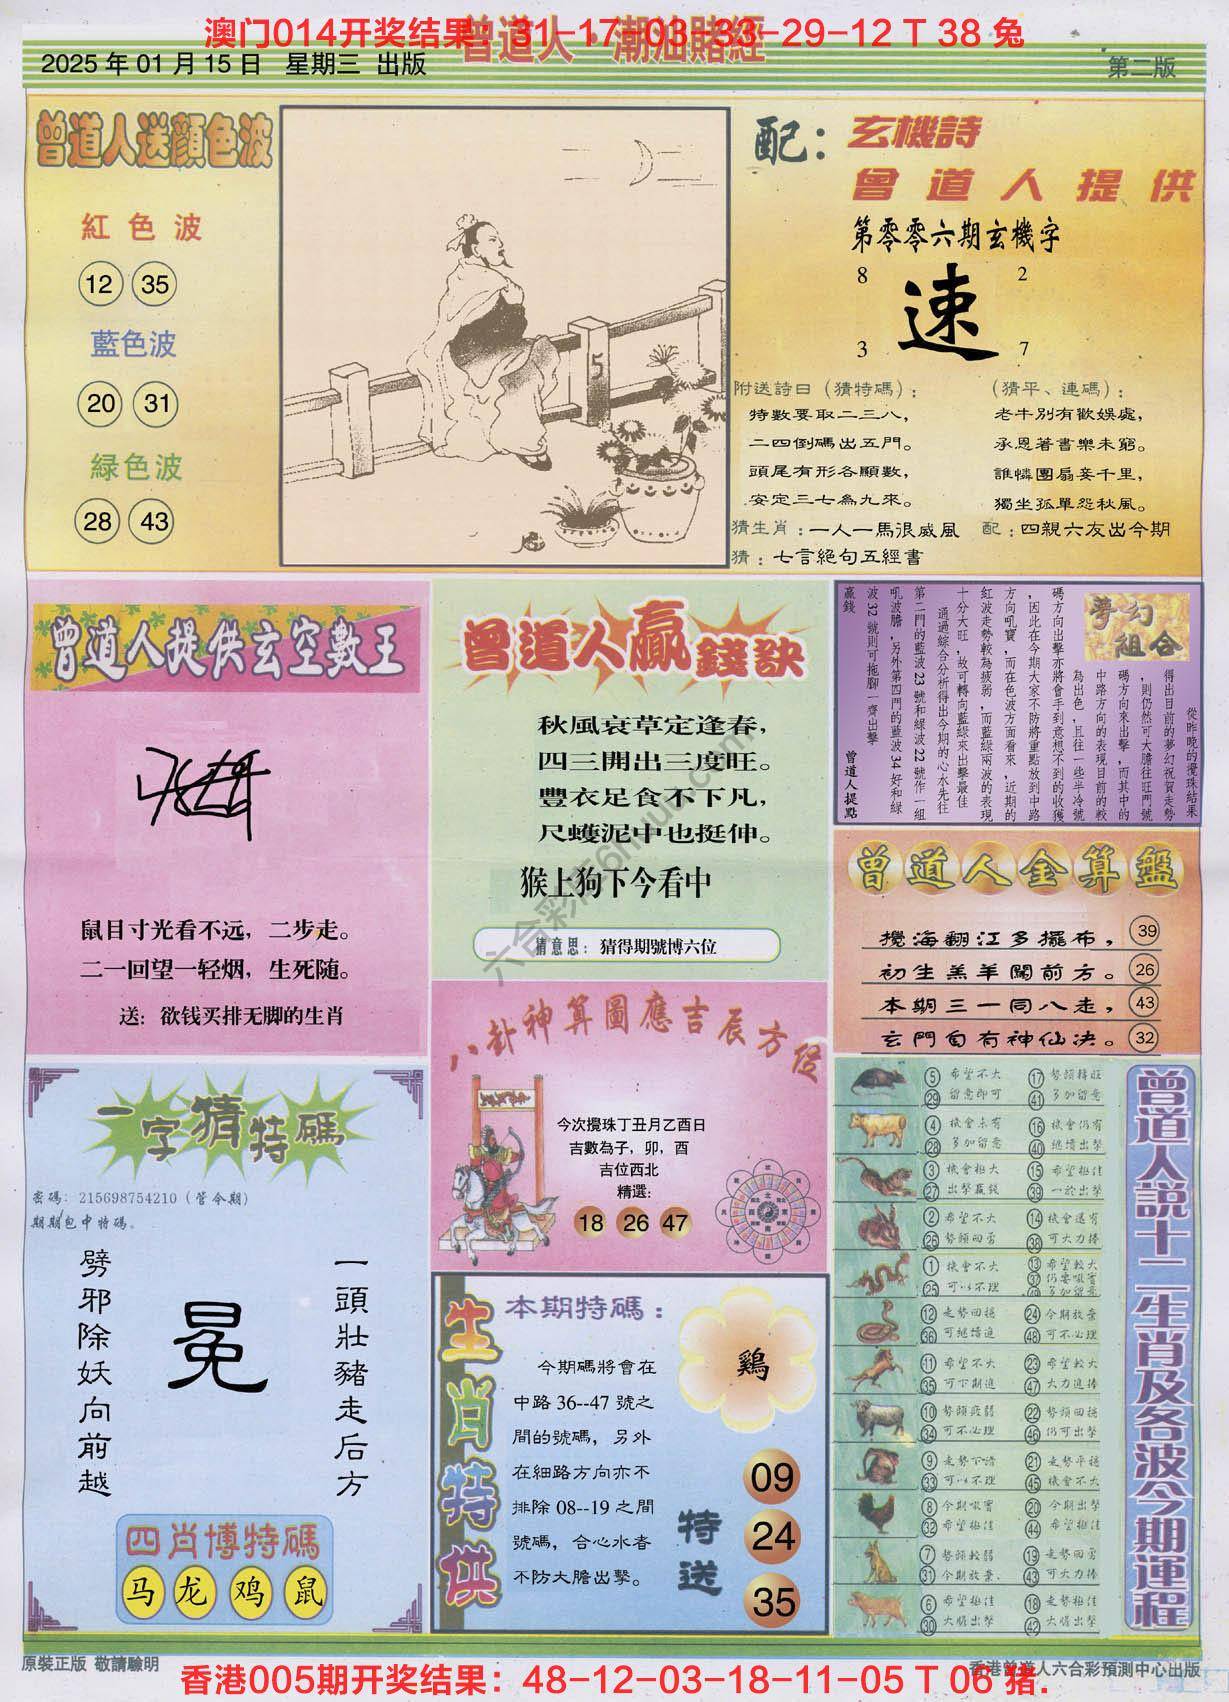 澳门014开奖结果：31-17-03-33-29-12 T 38 兔
曾道人·潮汕賭經
2025 年 01 月 15 日 星期三 出版
第二版
曾道人送顏色波
紅色波
12 35
藍色波
20 31
緑色波
28 43
5
配：玄機詩
曾道人提供
第零零六期玄機字
8 2
速
3 7
附送詩曰（猜特碼）：
特數要取二三八，
二四倒碼出五門。
頭尾有形各顯數，
安定三七為九來。
（猜平、連碼）：
老牛別有歡娛處，
承恩著書樂未窮。
誰憐團扇妾千里，
獨坐孤單怨秋風。
猜生肖：一人一馬很威風 配：四親六友出今期
猜：七言絕句五經書
曾道人提供玄空數王
鼠目寸光看不远，二步走。
二一回望一轻烟，生死随。
送：欲钱买排无脚的生肖
曾道人贏錢訣
秋風衰草定逢春，
四三開出三度旺。
豐衣足食不下凡，
尺蠖泥中也挺伸。
猴上狗下今看中
猜意思：猜得期號博六位
夢幻組合
從昨晚的攪珠結果
得出目前的夢幻祝賀走勢
，則仍然可大膽往旺門號
碼方向來出擊，而其中的
中路方向的表現目前的較
為出色，且往一些半冷號
碼方向出擊亦將會手到意想不到的收獲
，因此在今期大家不防將重點放到中路
方向吼寶，而在色波方面看來，近期的
紅波走勢較為疲弱，而藍綠兩波的表現
十分大旺，故可轉向藍綠來出擊最佳
通過綜合分析得出今期的心水先往
第二門的藍波 23 號和綠波 22 號作一組
吼波膽，另外第四門的藍波 34 好和綠
波 32 號則可拖腳一齊出擊
贏錢
曾道人提點
曾道人金算盤
攪海翻江多擺布， 39
初生羔羊闖前方。 26
本期三一同八走， 43
玄門自有神仙决。 32
八卦神算圖應吉辰方位
今次攪珠丁丑月乙酉日
吉數為子，卯，酉
吉位西北
精選:
18 26 47
一字猜特碼
密碼：215698754210（管令期）
期期包中特碼。
一頭壯豬走后方
冕
劈邪除妖向前越
四肖博特碼
马 龙 鸡 鼠
生肖特供
本期特碼：
今期碼將會在
中路 36--47 號之
間的號碼，另外
在細路方向亦不
排除 08--19 之間
號碼，合心水者
不防大膽出擊。
鷄
特送
09
24
35
曾道人説十二生肖及各波今期運程
5 29 希望不大 留意即可 17 41 勢頭轉旺 多加留意
4 28 機會未有 多加留意 16 40 機會仍有 繼續出擊
3 27 機會極大 出擊贏錢 15 39 希望極佳 一於出擊
2 26 希望不大 勢頭回勇 14 38 機會還有 可大力捧
1 25 機會不大 可以不理 13 希望較大
12 36 走勢回穩 可繼續進 24 48 今期放棄 可不必理
11 35 希望不大 可下期進 23 47 希望較大 大力進捧
10 34 勢頭疲弱 可不必理 22 46 勢頭回穩 仍可出擊
9 33 走勢下滑 可以不理 21 45 走勢平穩 機會不大
8 32 今期吼實 希望極佳 20 44 今期出擊 希望極佳
7 31 勢頭較弱 今期放棄. 19 43 走勢回勇 可大力捧
6 30 希望極佳 大膽出擊 18 42 走勢極佳 大膽出擊
原裝正版 敬請驗明
香港曾道人六合彩預測中心出版
香港005期开奖结果：48-12-03-18-11-05 T 06 猪.